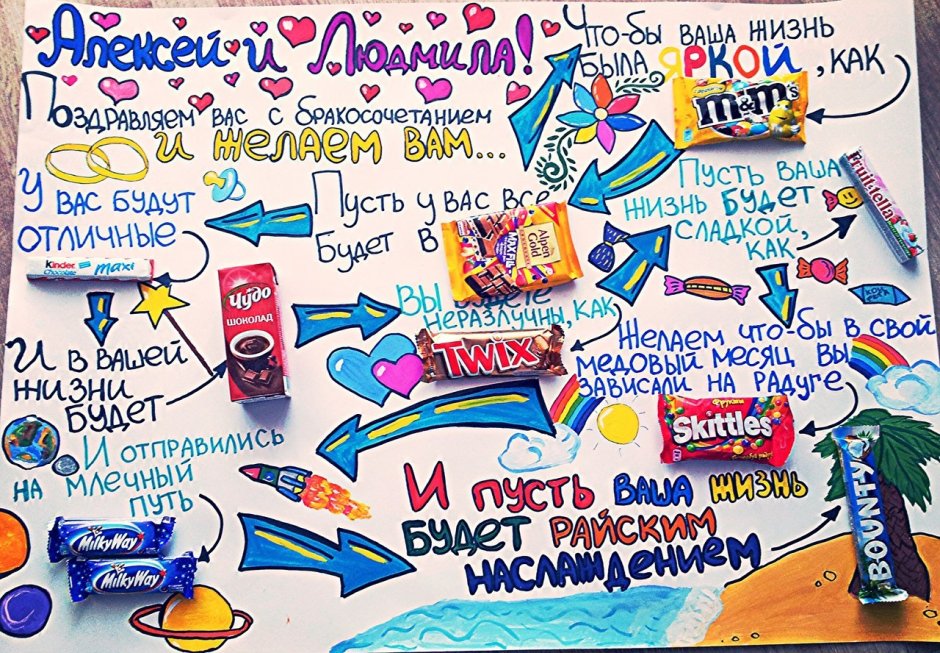 Алексей и Людмила!
Поздравляем вас с бракосочетанием
и желаем вам...
Что-бы ваша жизнь
была яркой, как
m&m's
Пусть у вас все
будет в
Alpen
Gold
У вас будут
отличные
Kinder
Chocolate
maxi
И в вашей
жизни
будет
Чудо
шоколад
Вы будете
неразлучны, как
TWIX
Пусть ваша
жизнь будет
сладкой,
как
Fruittella
Желаем что-бы в свой
медовый месяц вы
зависали на радуге
Skittles
И отправились
на млечный
путь
MilkyWay
MilkyWay
И пусть ваша жизнь
будет райским
наслаждением
BOUNTY